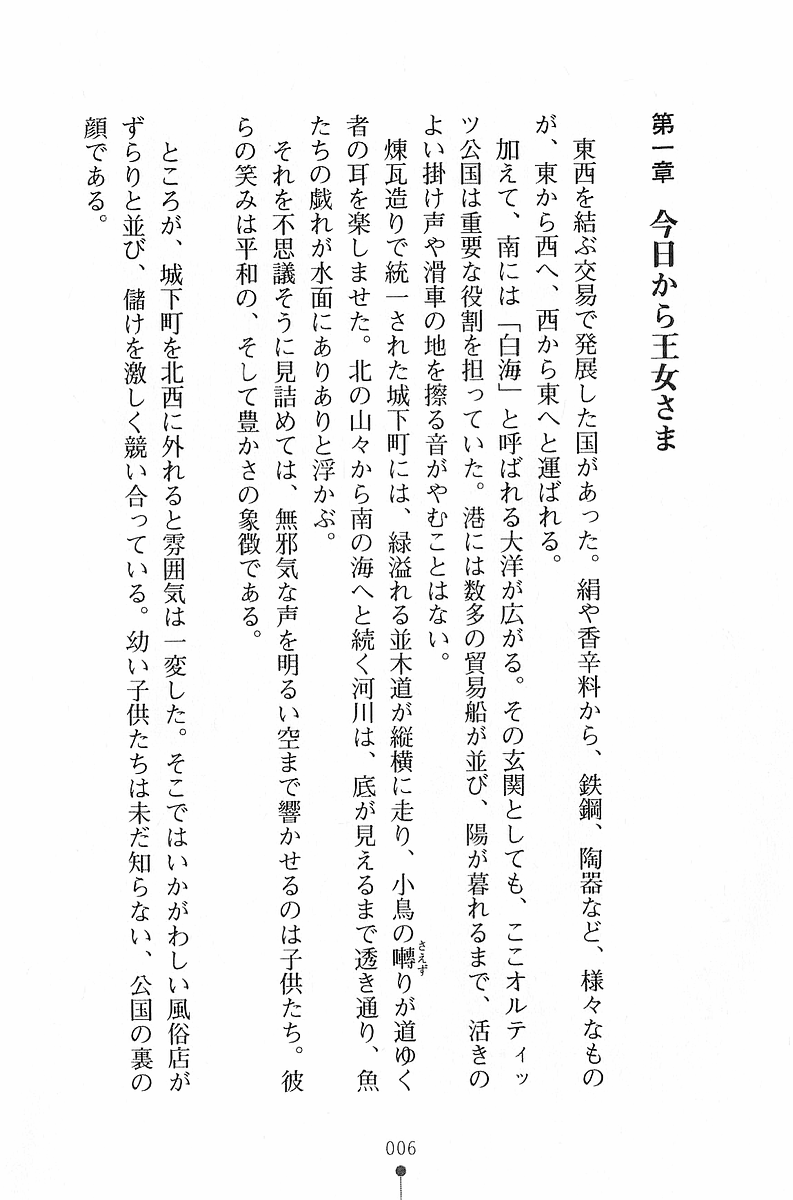 第一章　今日から王女さま
　東西を結ぶ交易で発展した国があった。絹や香辛料から、鉄鋼、陶器など、様々なもの
が、東から西へ、西から東へと運ばれる。
　加えて、南には「白海」と呼ばれる大洋が広がる。その玄関としても、ここオルティッ
ツ公国は重要な役割を担っていた。港には数多の貿易船が並び、陽が暮れるまで、活きの
よい掛け声や滑車の地を擦る音がやむことはない。
　煉瓦造りで統一された城下町には、緑溢れる並木道が縦横に走り、小鳥の囀りが道ゆく
さえず
者の耳を楽しませた。北の山々から南の海へと続く河川は、底が見えるまで透き通り、魚
たちの戯れが水面にありありと浮かぶ。
　それを不思議そうに見詰めては、無邪気な声を明るい空まで響かせるのは子供たち。彼
らの笑みは平和の、そして豊かさの象徴である。
　ところが、城下町を北西に外れると雰囲気は一変した。そこではいかがわしい風俗店が
ずらりと並び、儲けを激しく競い合っている。幼い子供たちは未だ知らない、公国の裏の
顔である。
006